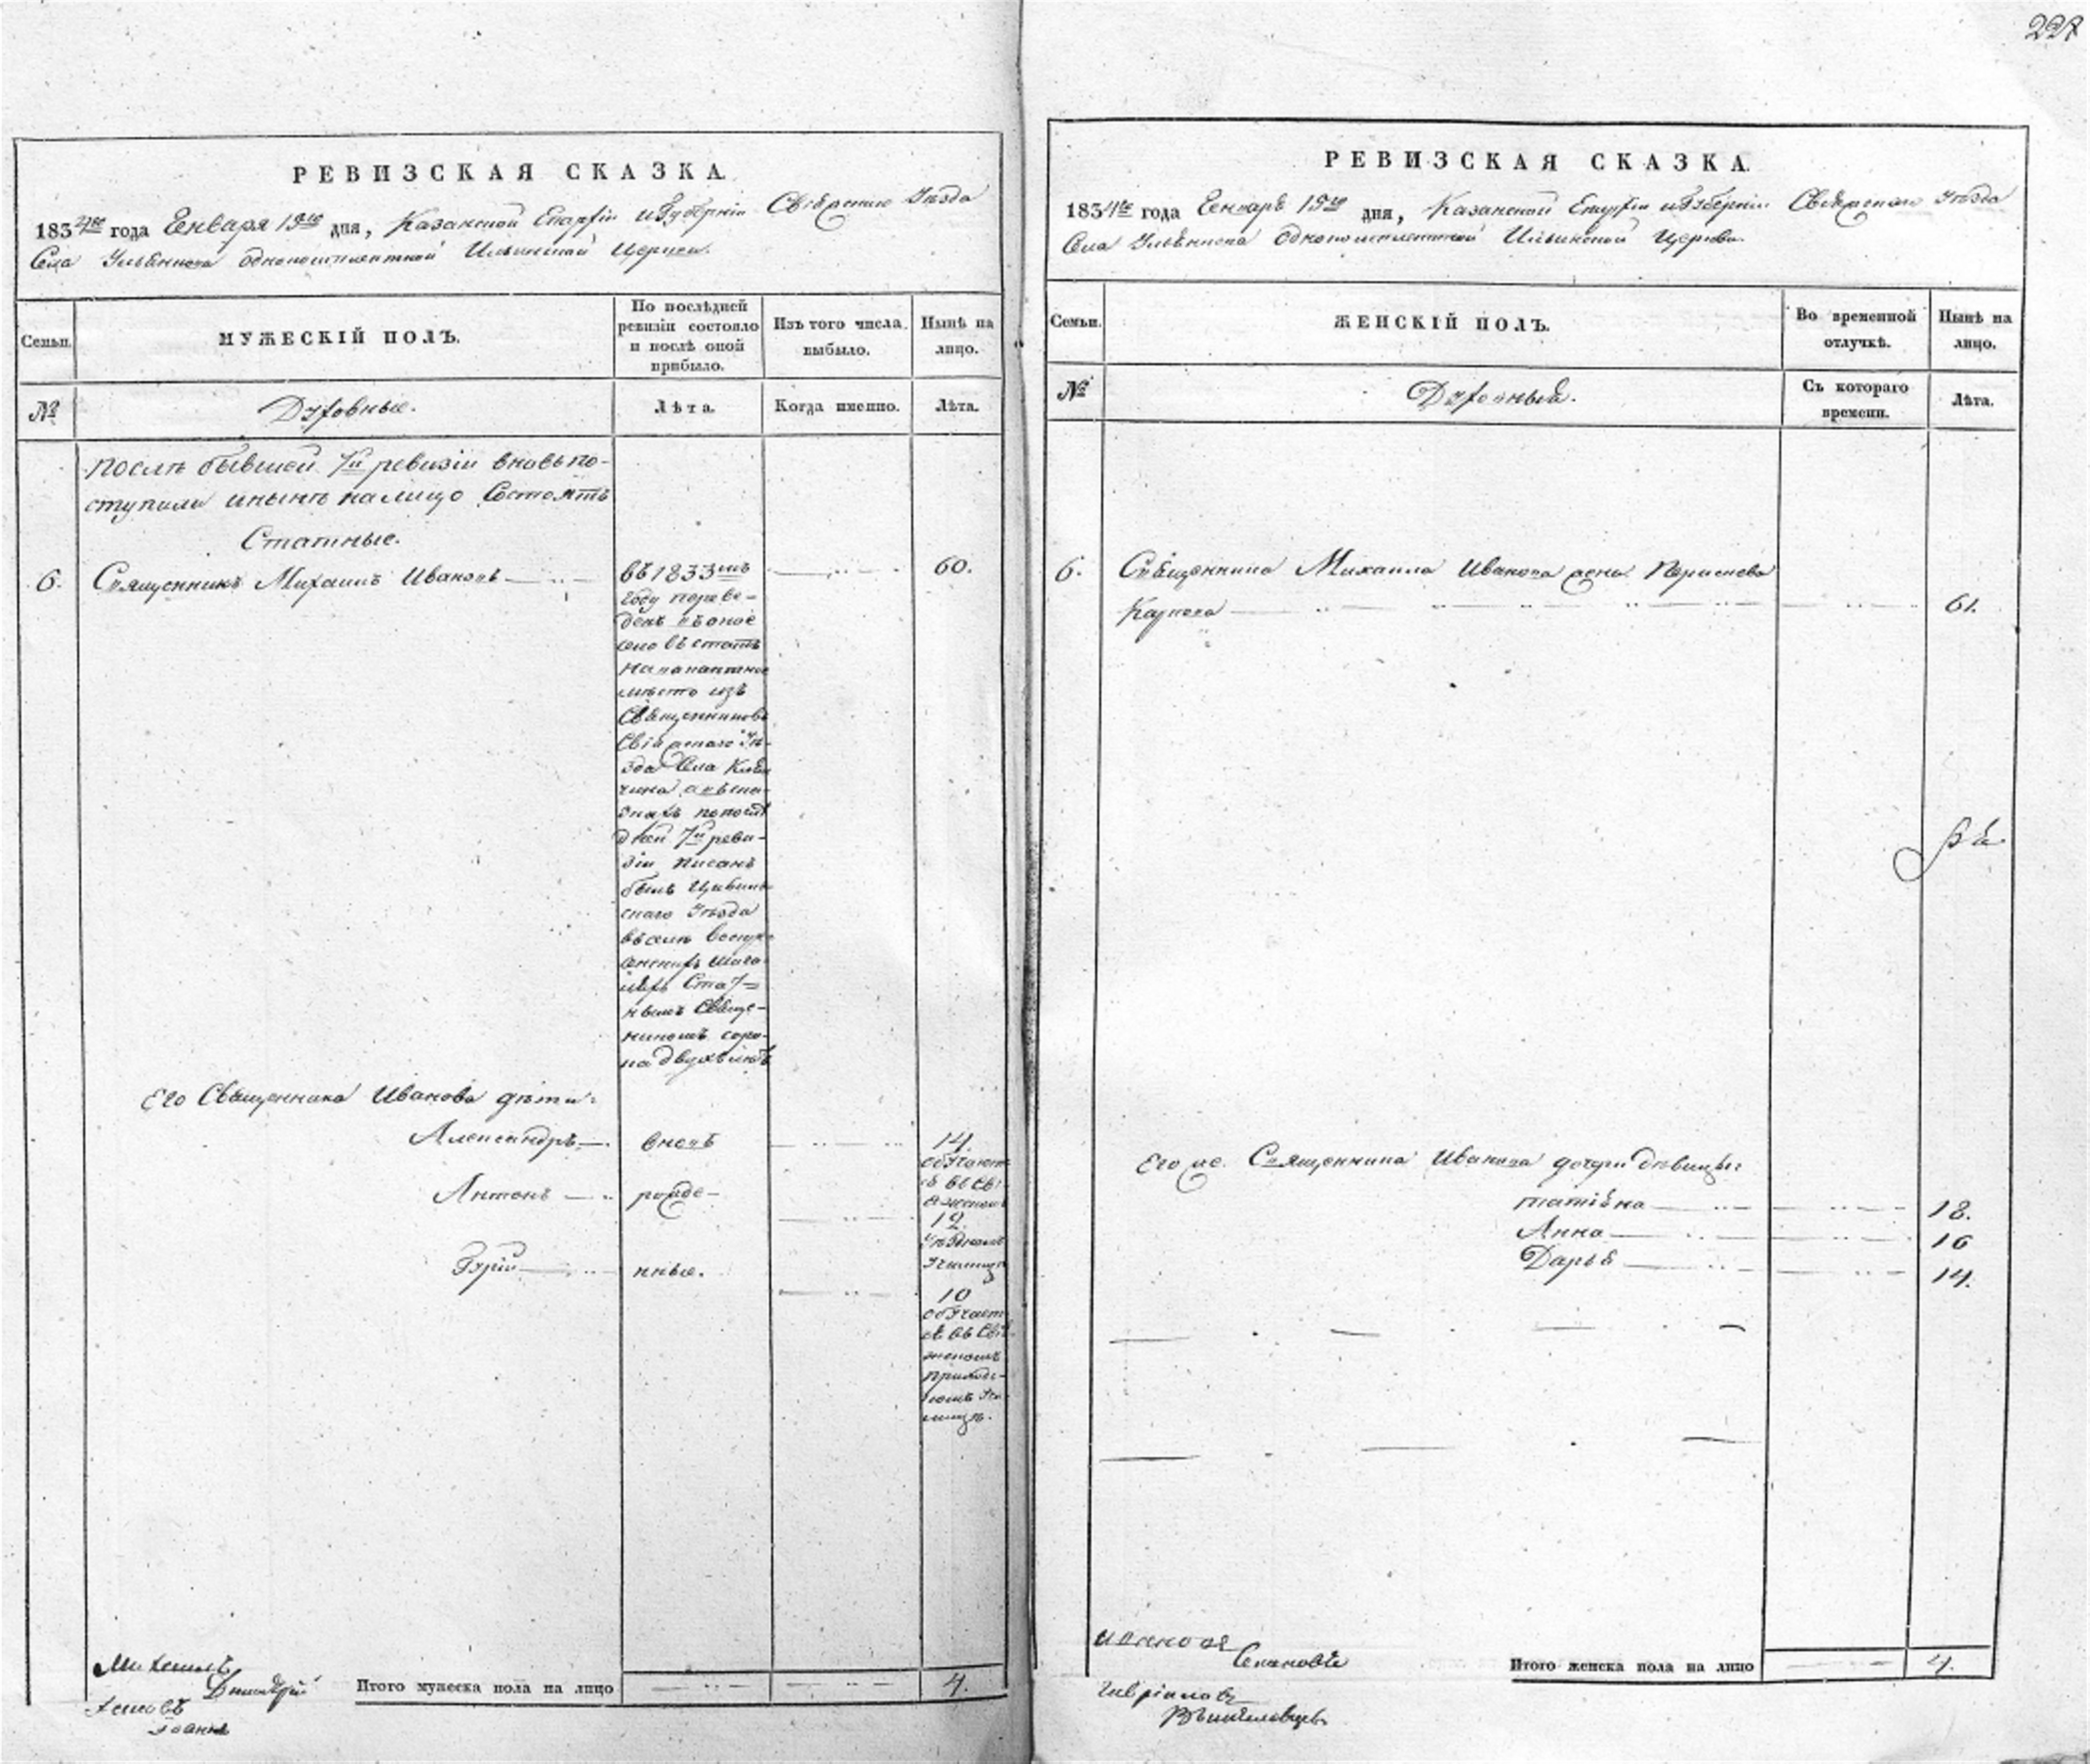 227
РЕВИЗСКАЯ СКАЗКА.
1834го года Генваря 19го дня, Казанской Епархіи и Губерніи Свіяжскаго Уѣзда
Села Ульянкова однокомплектной Ильинской Церкви.
Семьи.
МУЖЕСКІЙ ПОЛЪ.
По послѣдней
ревизіи состояло
и послѣ оной
прибыло.
Изъ того числа
выбыло.
Нынѣ на
лицо.
№
Духовные.
Лѣта.
Когда именно.
Лѣта.
послѣ бывшей 7й ревизіи вновь по-
ступили и нынѣ на лицо Состоятъ
Статные.
6. Священникъ Михаилъ Ивановъ
въ 1833мъ
60.
году переве-
денъ въ оное
село въ статъ
мѣсто изъ
Священниковъ
Свіяжскаго Уѣ-
зда Села
7й реви-
зіи писанъ
былъ Цивиль-
скаго Уѣзда
въ селѣ
нымъ Свяще-
никомъ соро-
ка двухъ лѣтъ
Его Священника Иванова дѣти:
Александръ вновь 14.
обучают-
ся въ Сві-
яжскомъ
Антонъ рожде- 12.
Уѣздномъ
Училищѣ
Гурій нные. 10
обучает-
ся въ Свія-
жскомъ
приход-
скомъ Учи-
лищѣ.
Итого мужеска пола на лицо 4.
Михаилъ
Димитрій
Іоаннъ
РЕВИЗСКАЯ СКАЗКА.
1834го года Генваря 19го дня, Казанской Епархіи и Губерніи Свіяжскаго Уѣзда
Села Ульянкова однокомплектной Ильинской Церкви.
Семьи.
ЖЕНСКІЙ ПОЛЪ.
Во временной
отлучкѣ.
Нынѣ на
лицо.
№
Духовныя.
Съ котораго
времени.
Лѣта.
6. Священника Михаила Иванова жена
Карпова 61.
Его же Священника Иванова дочери дѣвицы:
татіяна 18.
Анна 16
Дарья 14.
Итого женска пола на лицо 4.